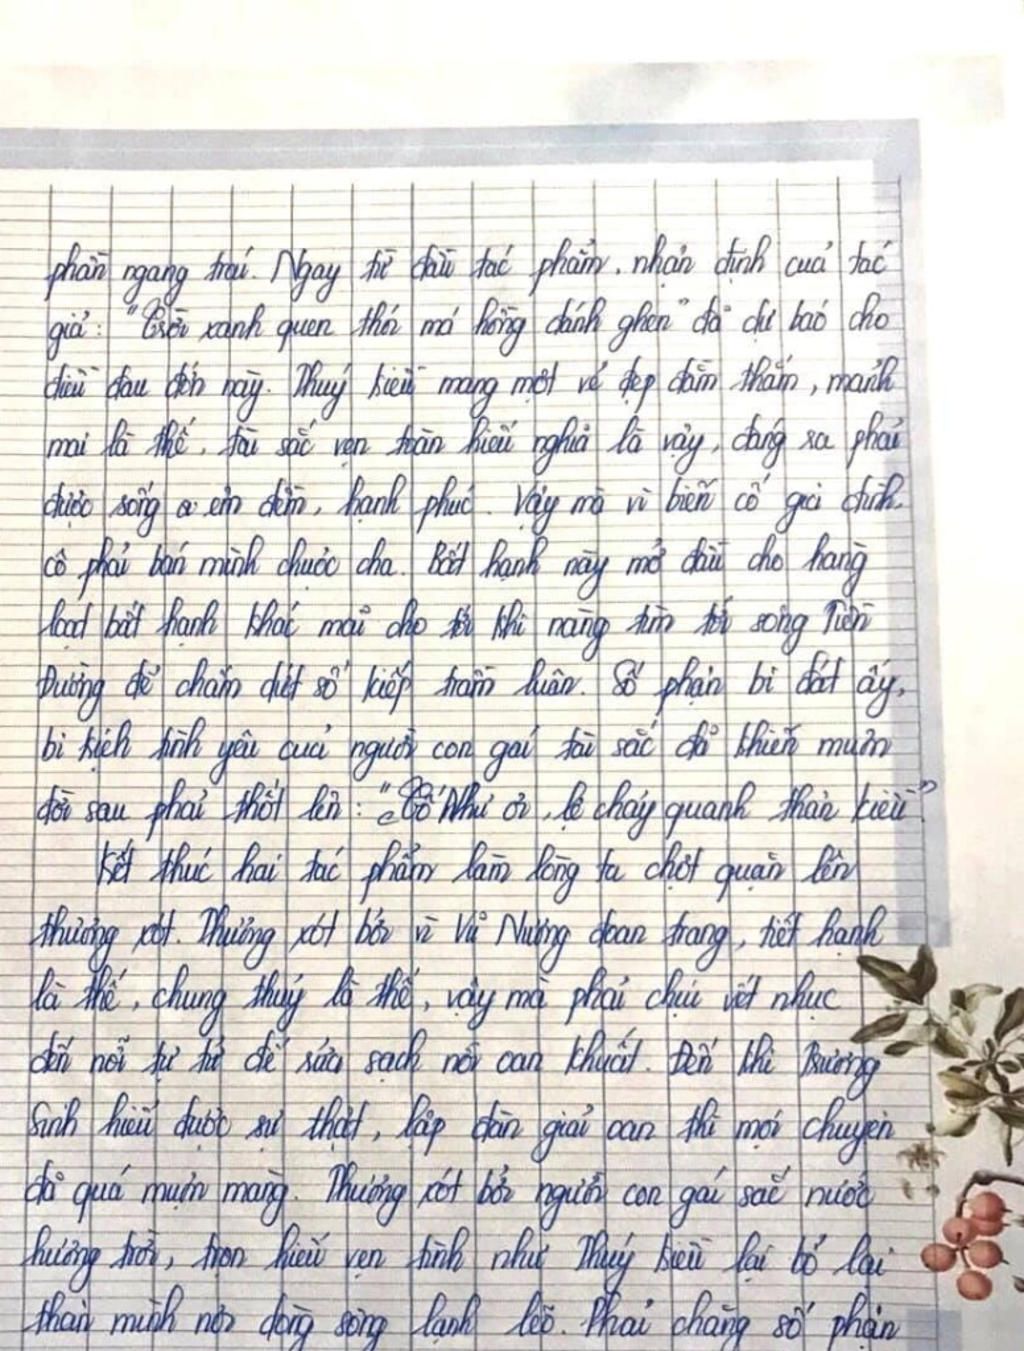 phần ngang trái. Ngay từ đầu tác phẩm, nhận định của tác
giả: "Trời xanh quen thói má hồng đánh ghen" đã dự báo cho
điều đau đớn này. Thuý Kiều mang một vẻ đẹp đằm thắm, mảnh
mai là thế, tài sắc vẹn toàn hiếu nghĩa là vậy, đáng ra phải
được sống êm đềm, hạnh phúc. Vậy mà vì biến cố gia đình,
cô phải bán mình chuộc cha. Bất hạnh này mở đầu cho hàng
loạt bất hạnh khác mãi cho tới khi nàng tìm tới sông Tiền
Đường để chấm dứt số kiếp trầm luân. Số phận bi đát ấy,
bi kịch tình yêu của người con gái tài sắc đã khiến muôn
đời sau phải thốt lên: "Tố Như ơi, lệ chảy quanh thân Kiều"
Kết thúc hai tác phẩm làm lòng ta chợt quặn lên
thương xót. Thương xót bởi vì Vũ Nương đoan trang, tiết hạnh
là thế, chung thuỷ là thế, vậy mà phải chịu vết nhục
đến nỗi tự tử để rửa sạch nỗi oan khuất. Đến khi Trương
Sinh hiểu được sự thật, lập đàn giải oan thì mọi chuyện
đã quá muộn màng. Thương xót bởi người con gái sắc nước
hương trời, trọn hiếu vẹn tình như Thuý Kiều lại bỏ lại
thân mình nơi dòng sông lạnh lẽo. Phải chăng số phận